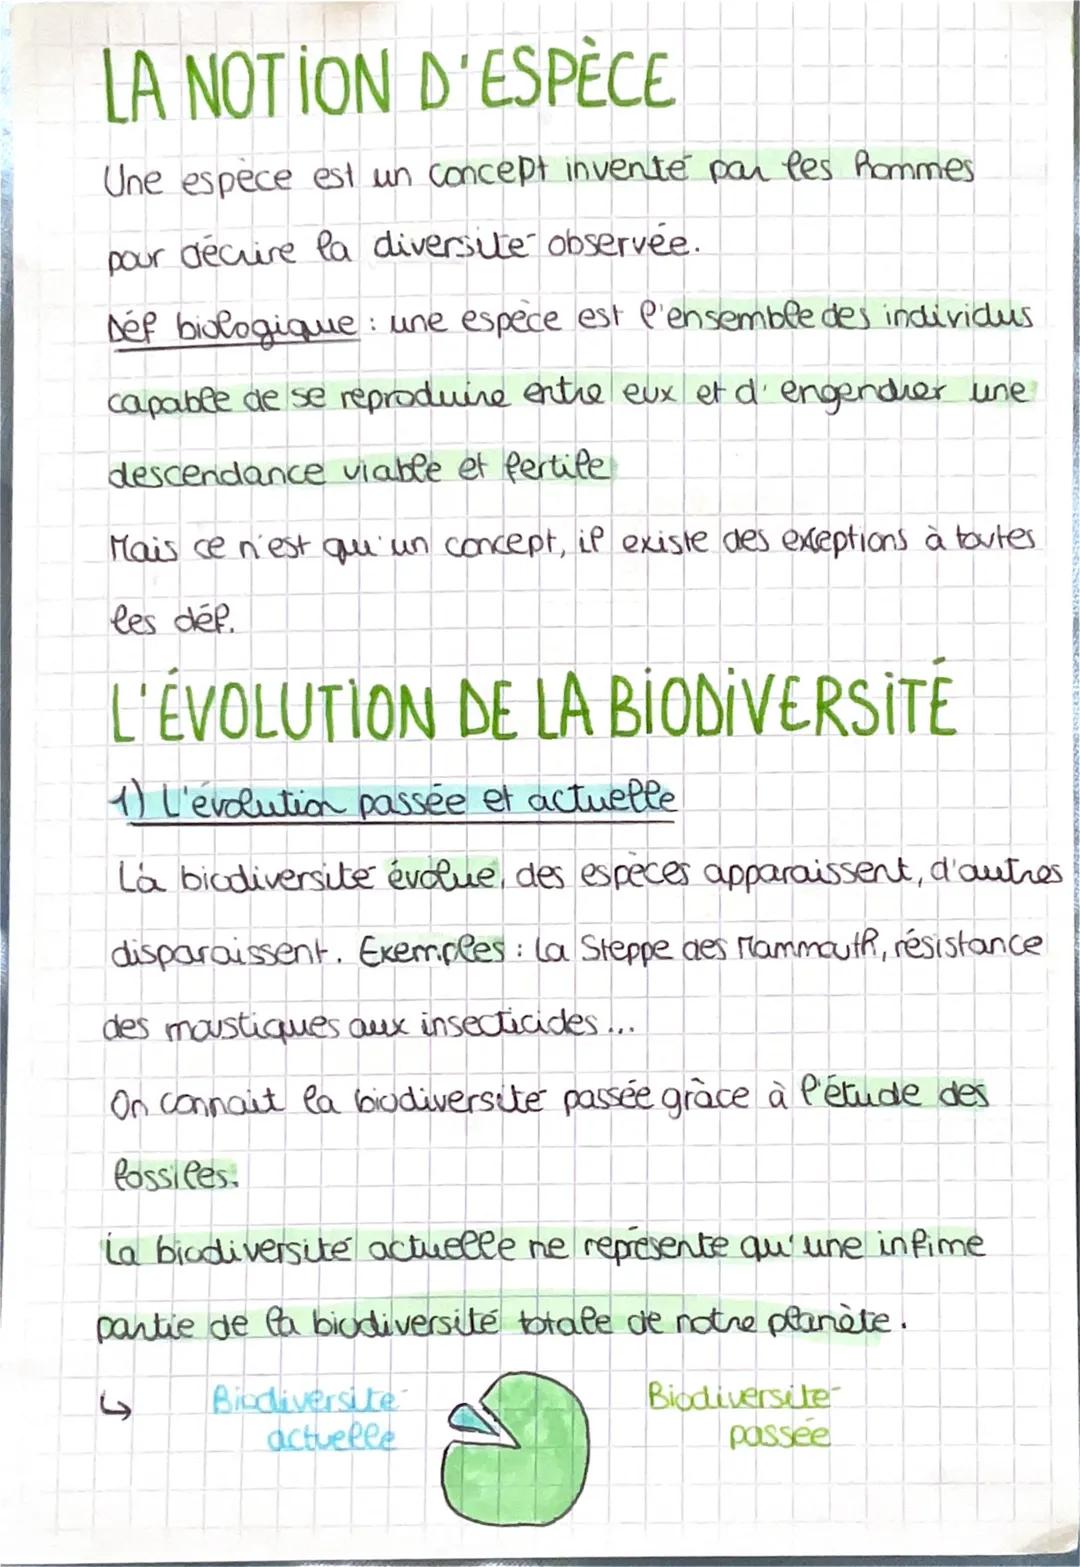 LA NOTION D'ESPÈCE
Une espèce est un concept inventé par les hommes
pour décrire la diversité observée.
Déf biologique : une espèce est l'ensemble des individus
capable de se reproduire entre eux et d'engendrer une
descendance viable et fertile
Mais ce n'est qu'un concept, il existe des exceptions à toutes
les déf.
L'ÉVOLUTION DE LA BIODIVERSITÉ
1) L'évolution passée et actuelle
La biodiversité évolue, des espèces apparaissent, d'autres
disparaissent. Exemples : la Steppe des Mammouth, résistance
des moustiques aux insecticides...
On connait la biodiversité passée grâce à l'étude des
fossiles.
La biodiversité actuelle ne représente qu'une infime
partie de la biodiversité totale de notre planète.
↳ Biodiversité actuelle
Biodiversité passée